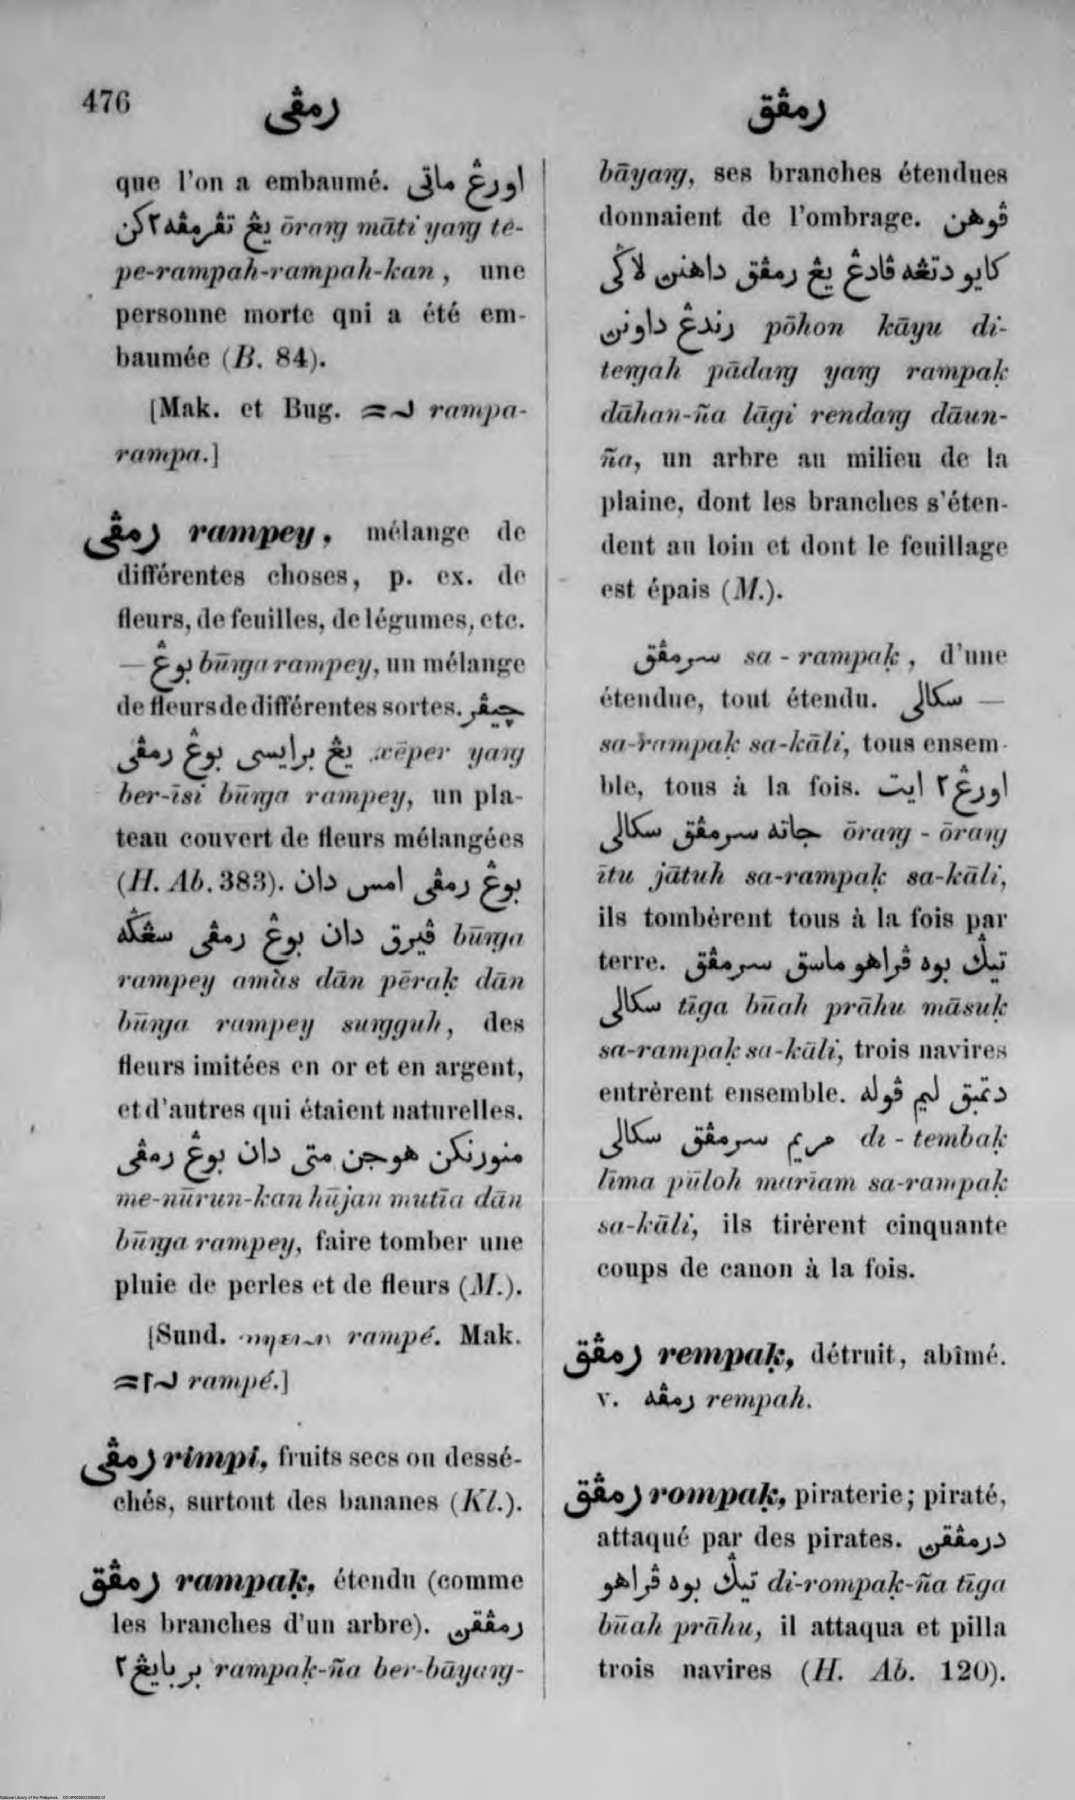 476
رمڤي
رمڤق
que l'on a embaumé. اورڠ ماتي
يڠ تڤرمڤه٢كن ōraŋ māti yaŋ te-
pe-rampah-rampah-kan, une
personne morte qni a été em-
baumée (B. 84).
[Mak. et Bug. rampa-
rampa.]
رمڤي rampey, mélange de
différentes choses, p. ex. de
fleurs, de feuilles, de légumes, etc.
— بوڠ būŋa rampey, un mélange
de fleurs de différentes sortes. چيڤر
يڠ برايسي بوڠ رمڤي xēper yaŋ
ber-īsi būŋa rampey, un pla-
teau couvert de fleurs mélangées
(H. Ab. 383). بوڠ رمڤي امس دان
ڤيرق دان بوڠ رمڤي سڠݢه būŋa
rampey amàs dān pēraḳ dān
būŋa rampey suŋguh, des
fleurs imitées en or et en argent,
et d'autres qui étaient naturelles.
منورنكن هوجن متي دان بوڠ رمڤي
me-nūrun-kan hūjan mutīa dān
būŋa rampey, faire tomber une
pluie de perles et de fleurs (M.).
[Sund. rampé. Mak.
rampé.]
رمڤي rimpi, fruits secs ou dessé-
chés, surtout des bananes (Kl.).
رمڤق rampaḳ, étendu (comme
les branches d'un arbre). رمڤقن
بربايڠ٢ rampaḳ-ña ber-bāyaŋ-
bāyaŋ, ses branches étendues
donnaient de l'ombrage. ڤوهن
كايو دتڠه ڤادڠ يڠ رمڤق داهنن لاݢي
رندڠ داونن pōhon kāyu di-
teŋah pādaŋ yaŋ rampaḳ
dāhan-ña lāgi rendaŋ dāun-
ña, un arbre au milieu de la
plaine, dont les branches s'éten-
dent au loin et dont le feuillage
est épais (M.).
سرمڤق sa-rampaḳ, d'une
étendue, tout étendu. سكالي —
sa-rampaḳ sa-kāli, tous ensem-
ble, tous à la fois. اورڠ٢ ايت
جاته سرمڤق سكالي ōraŋ-ōraŋ
ītu jātuh sa-rampaḳ sa-kāli,
ils tombèrent tous à la fois par
terre. تيݢ بوه ڤراهو ماسق سرمڤق
سكالي tīga būah prāhu māsuḳ
sa-rampaḳ sa-kāli, trois navires
entrèrent ensemble. دتمبق ليم ڤوله
مريم سرمڤق سكالي di-tembaḳ
līma pūloh marīam sa-rampaḳ
sa-kāli, ils tirèrent cinquante
coups de canon à la fois.
رمڤق rempaḳ, détruit, abîmé.
v. رمڤه rempah.
رمڤق rompaḳ, piraterie; piraté,
attaqué par des pirates. درمڤقن
تيݢ بوه ڤراهو di-rompaḳ-ña tīga
būah prāhu, il attaqua et pilla
trois navires (H. Ab. 120).